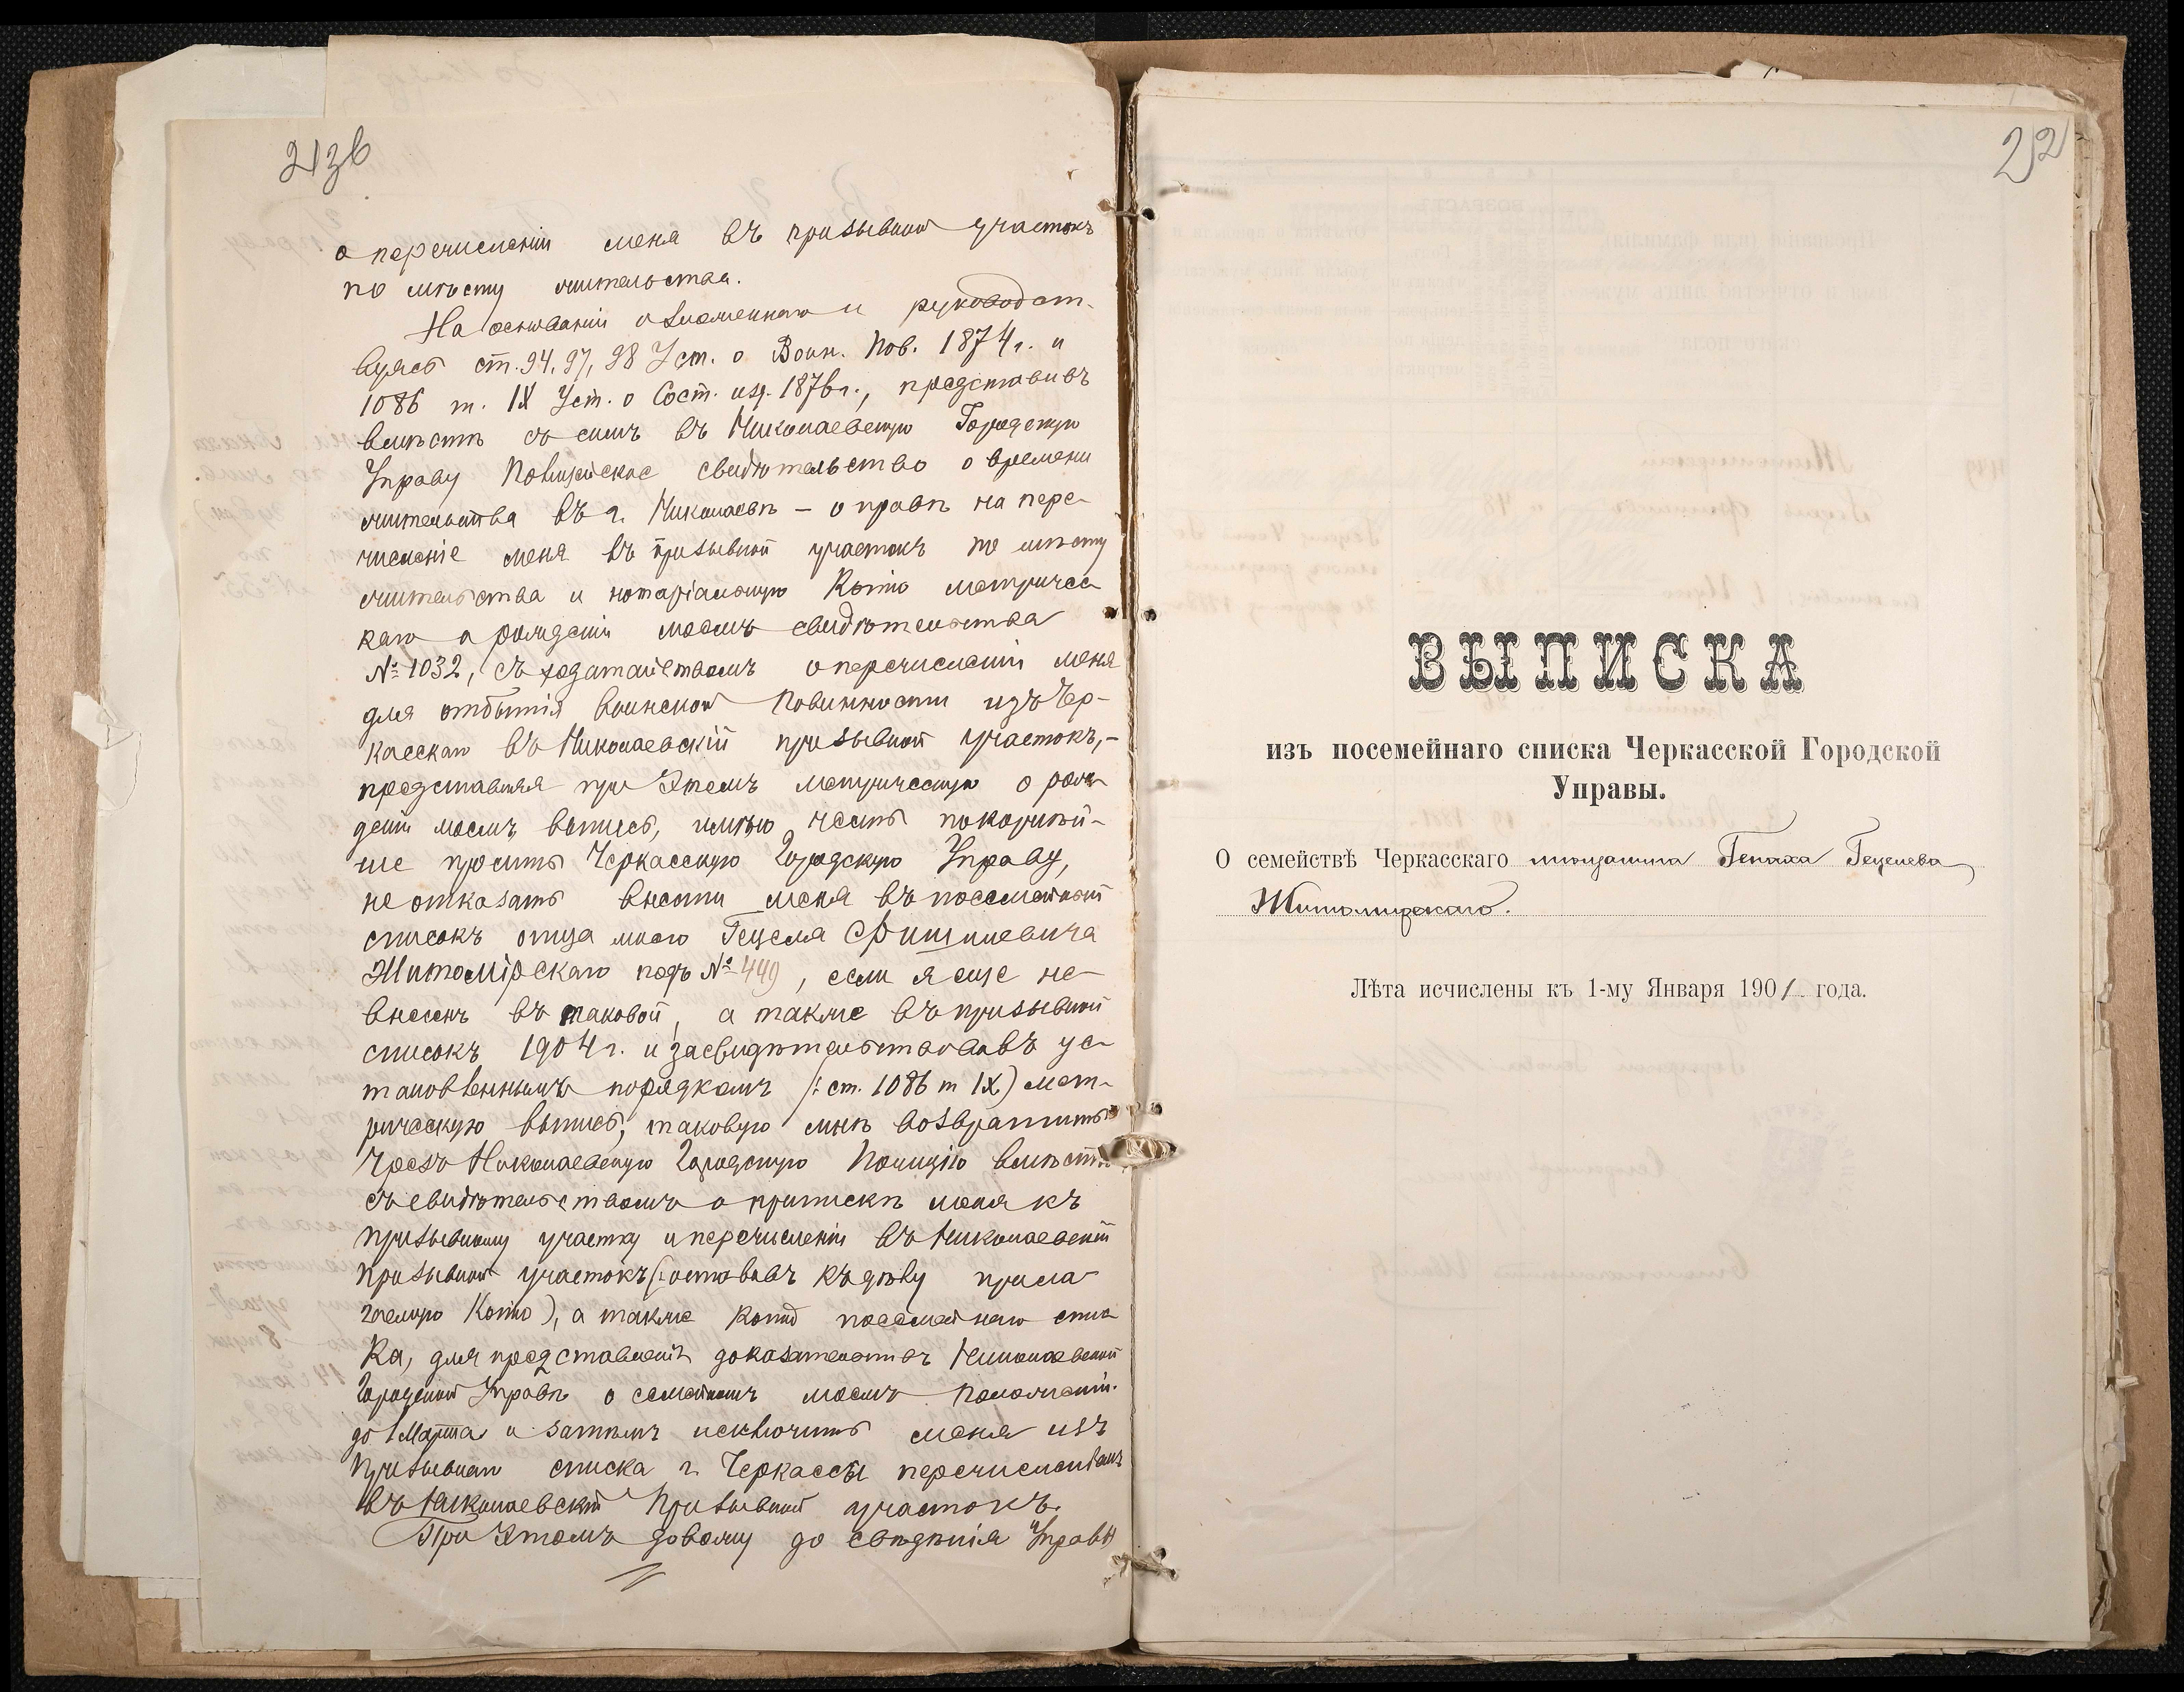 21зв
о перечисленіи меня въ призывной участокъ
по мѣсту жительства.
На основаніи изложеннаго и руководст-
вуясь ст. 94, 97, 98 Уст. о Воин. Пов. 1874 г. и
1086 т. IX Уст. о Сост. изд. 1876 г., представивъ
вмѣстѣ съ симъ въ Николаевскую Городскую
Управу Полицейское свидѣтельство о времени
жительства въ г. Николаевѣ – о правѣ на пере-
численіе меня въ призывной участокъ по мѣсту
жительства и нотаріальную Копію метричес-
каго о рожденіи моемъ свидѣтельства
№ 1032, съ ходатайствомъ о перечисленіи меня
для отбытія воинской Повинности изъ Чер-
касскаго въ Николаевскій призывной участокъ, –
представляя при Этомъ метрическую о рож-
деніи моемъ выпись, имѣю честь покорнѣй-
ше просить Черкасскую Городскую Управу,
не отказать внести меня въ посемейный
списокъ отца моего Гецеля Фишилевича
Житомірскаго подъ № 449, если я еще не-
внесенъ въ таковой, а также въ призывной
списокъ 1904 г. и засвидѣтельствовавъ ус-
тановленнымъ порядкомъ /: ст. 1086 т IX) мет-
рическую выпись, таковую мнѣ возвратить
чрезъ Николаевскую Городскую Полицію вмѣстѣ
съ свидѣтельствомъ о припискѣ меня къ
призывному участку и перечисленіи въ Николаевскій
призывной участокъ (: оставивъ къ дѣлу прила-
гаемую Копію), а также копію посемейнаго спис-
ка, для представленія доказательствъ Николаевской
Городской Управѣ о семейномъ моемъ положеніи.
до 1 Марта и затѣмъ исключить меня изъ
призывнаго списка г. Черкассы перечисленіемъ
въ Николаевскій Призывной участокъ.
При Этомъ довожу до свѣдѣнія Управы
22
ВЫПИСКА
изъ посемейнаго списка Черкасской Городской
Управы.
О семействѣ Черкасскаго мѣщанина Генаха Гецелева
Житомирскаго.
Лѣта исчислены къ 1-му Января 1901 года.